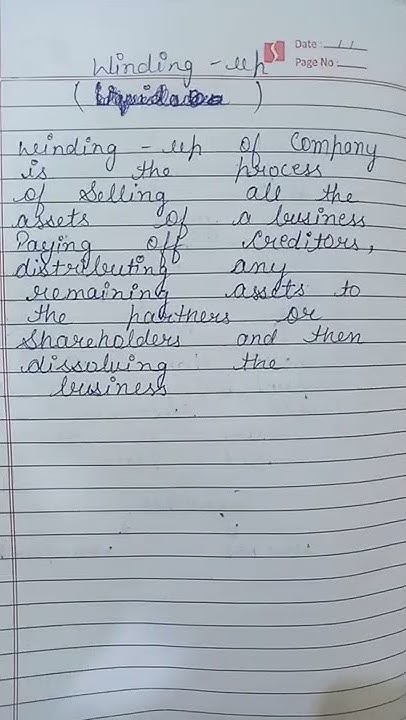 Date : / /
Page No :
Winding - up
(          )
Winding - up of Company
is the process
of Selling all the
assets of a business
Paying off Creditors,
distributing any
remaining assets to
the partners or
Shareholders and then
dissolving the
business